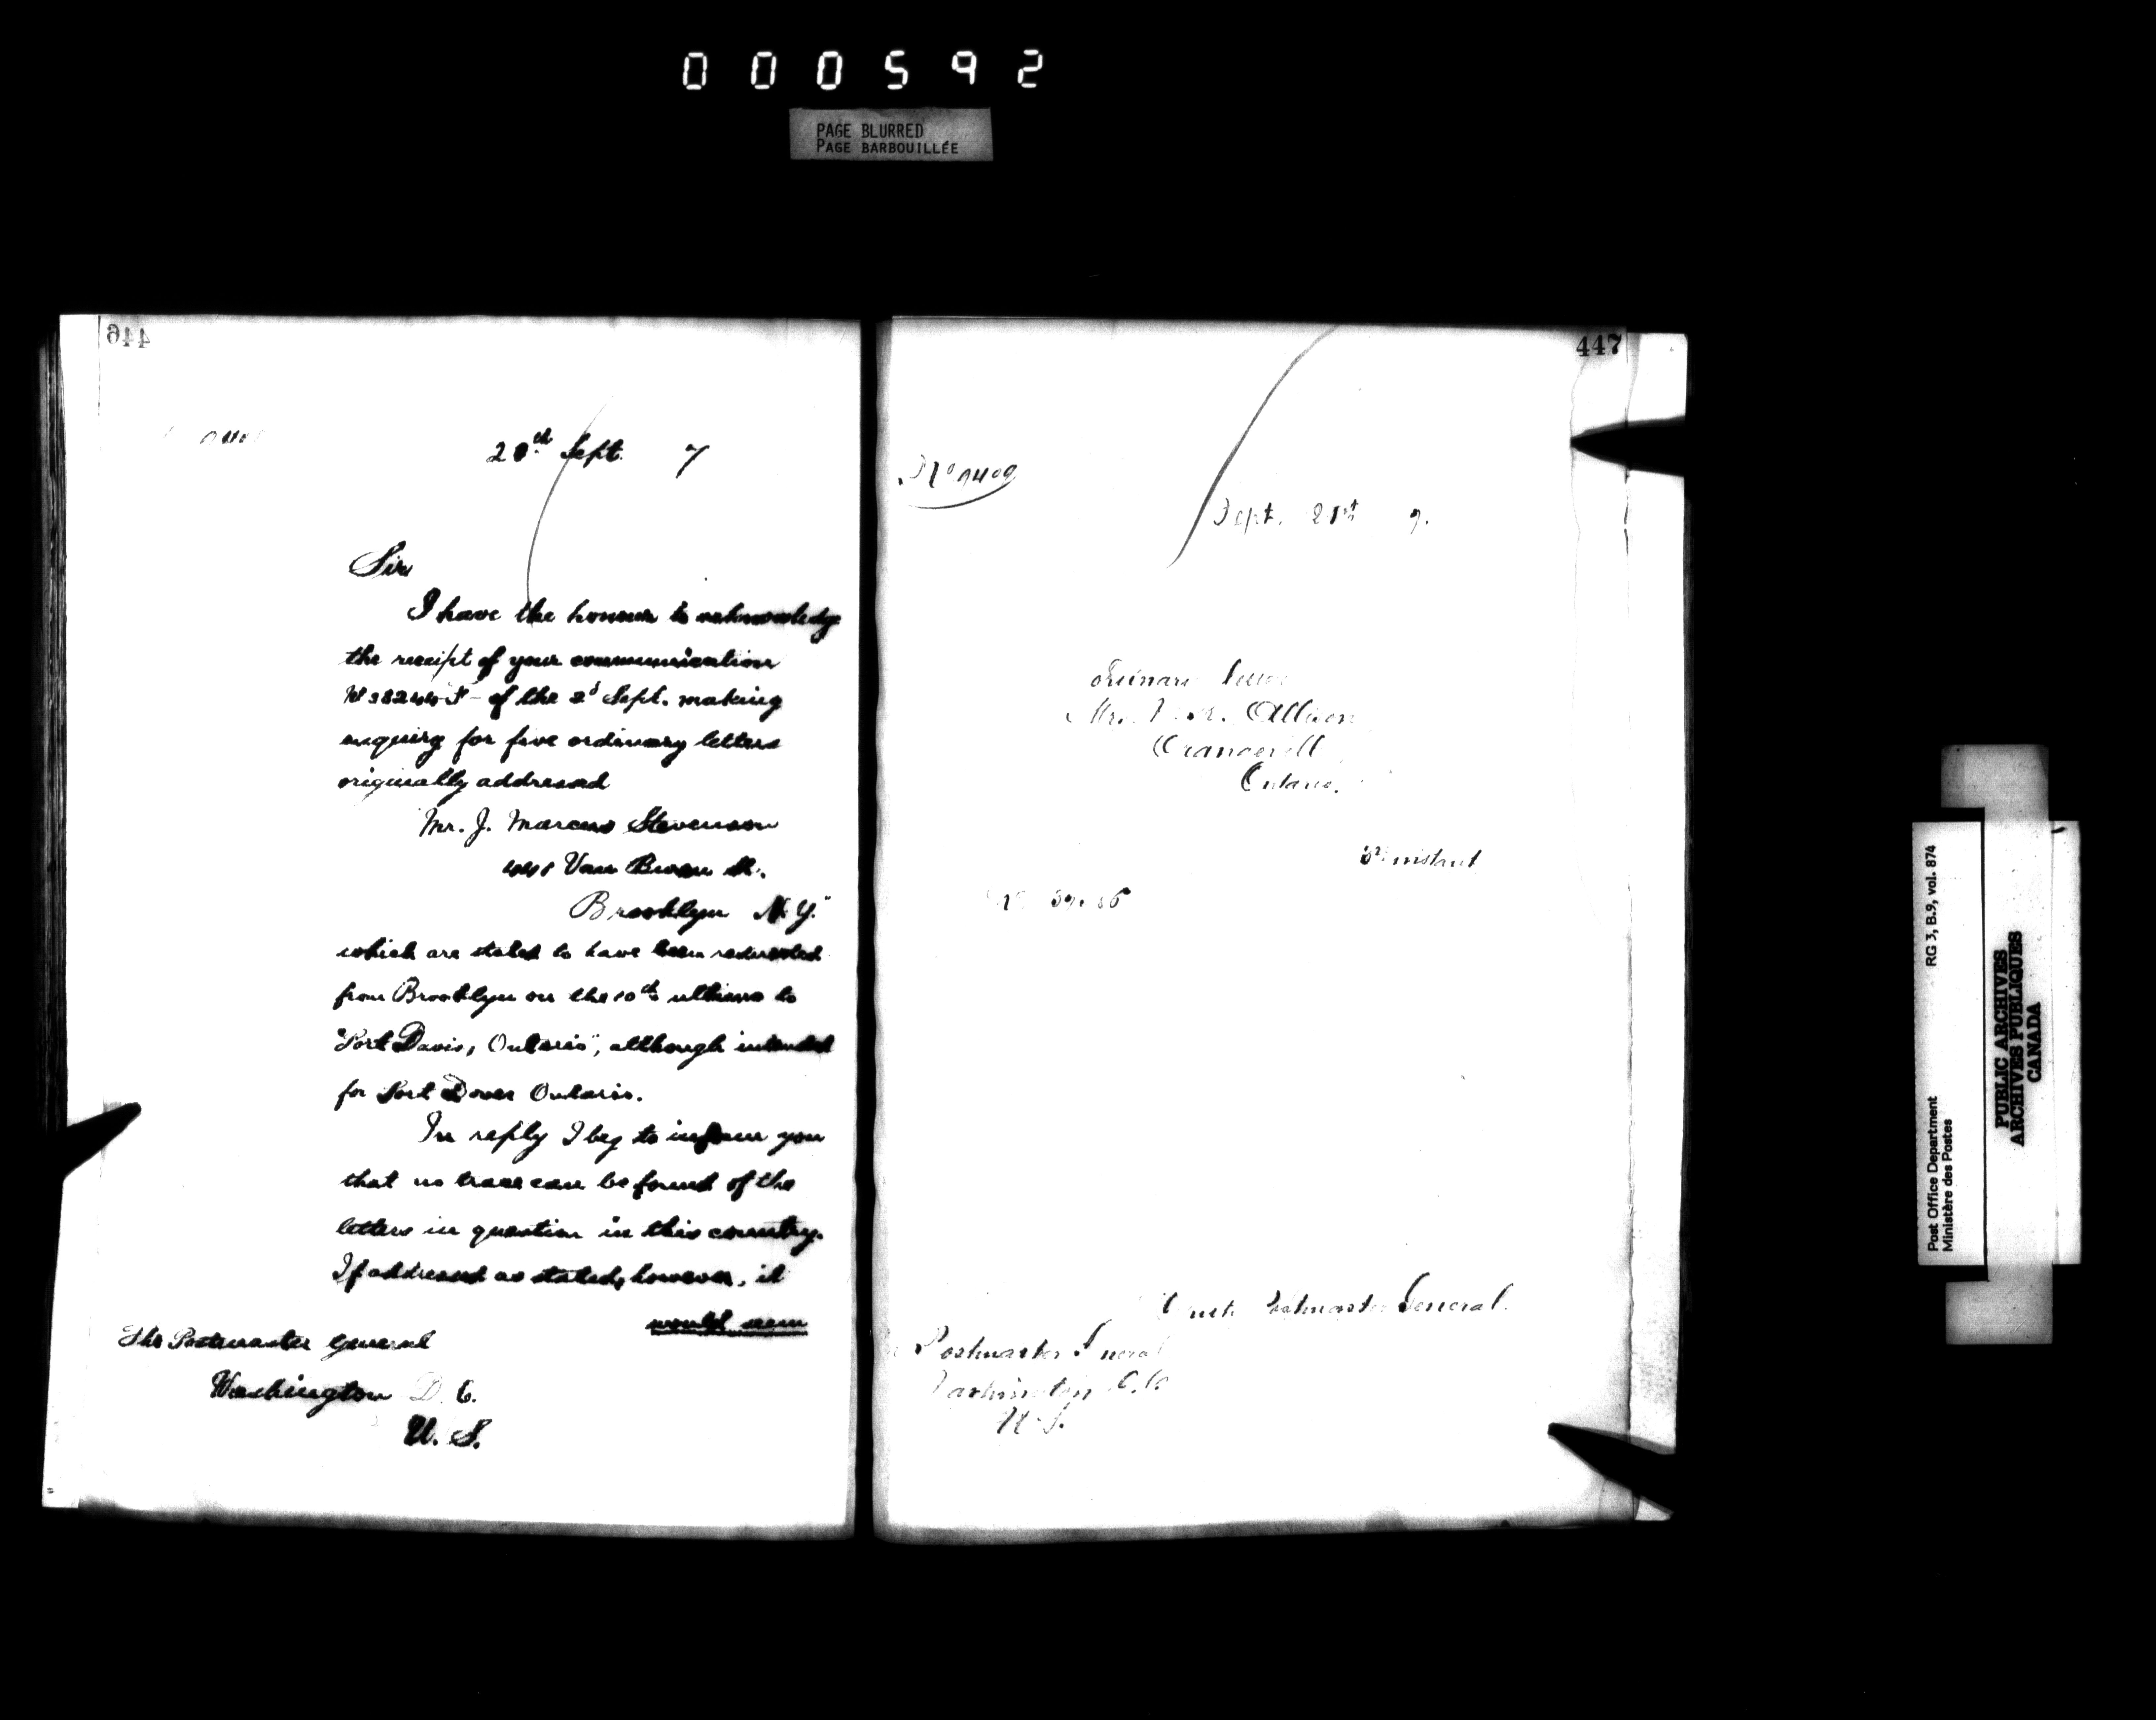 000592
PAGE BLURRED
PAGE BARBOUILLÉE
446
20th Sept. 7
Sir
I have the honour to acknowledge
the receipt of your communication
of the 2d Sept. making
enquiry for five ordinary letters
originally addressed
Mr. J. Marcus Stevenson
Van Buren St.
Brooklyn N.Y."
which are stated to have been redirected
from Brooklyn on the 10th ultimo to
"Port Davis, Ontario", although intended
for Port Dover Ontario.
In reply I beg to inform you
that no trace can be found of the
letters in question in this country.
If addressed as stated, however, it
would seem
The Postmaster General
Washington D.C.
U. S.
447
No 9409
Sept. 21st 7.
Mr. Allison
Ontario.
instant
Postmaster General.
Postmaster General
Washington D.C.
U. S.
Post Office Department
Ministère des Postes
RG 3, B.9, vol. 874
PUBLIC ARCHIVES
ARCHIVES PUBLIQUES
CANADA